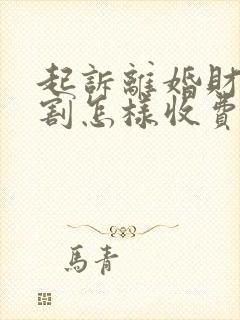 起訴離婚財
割怎樣收費
馬青